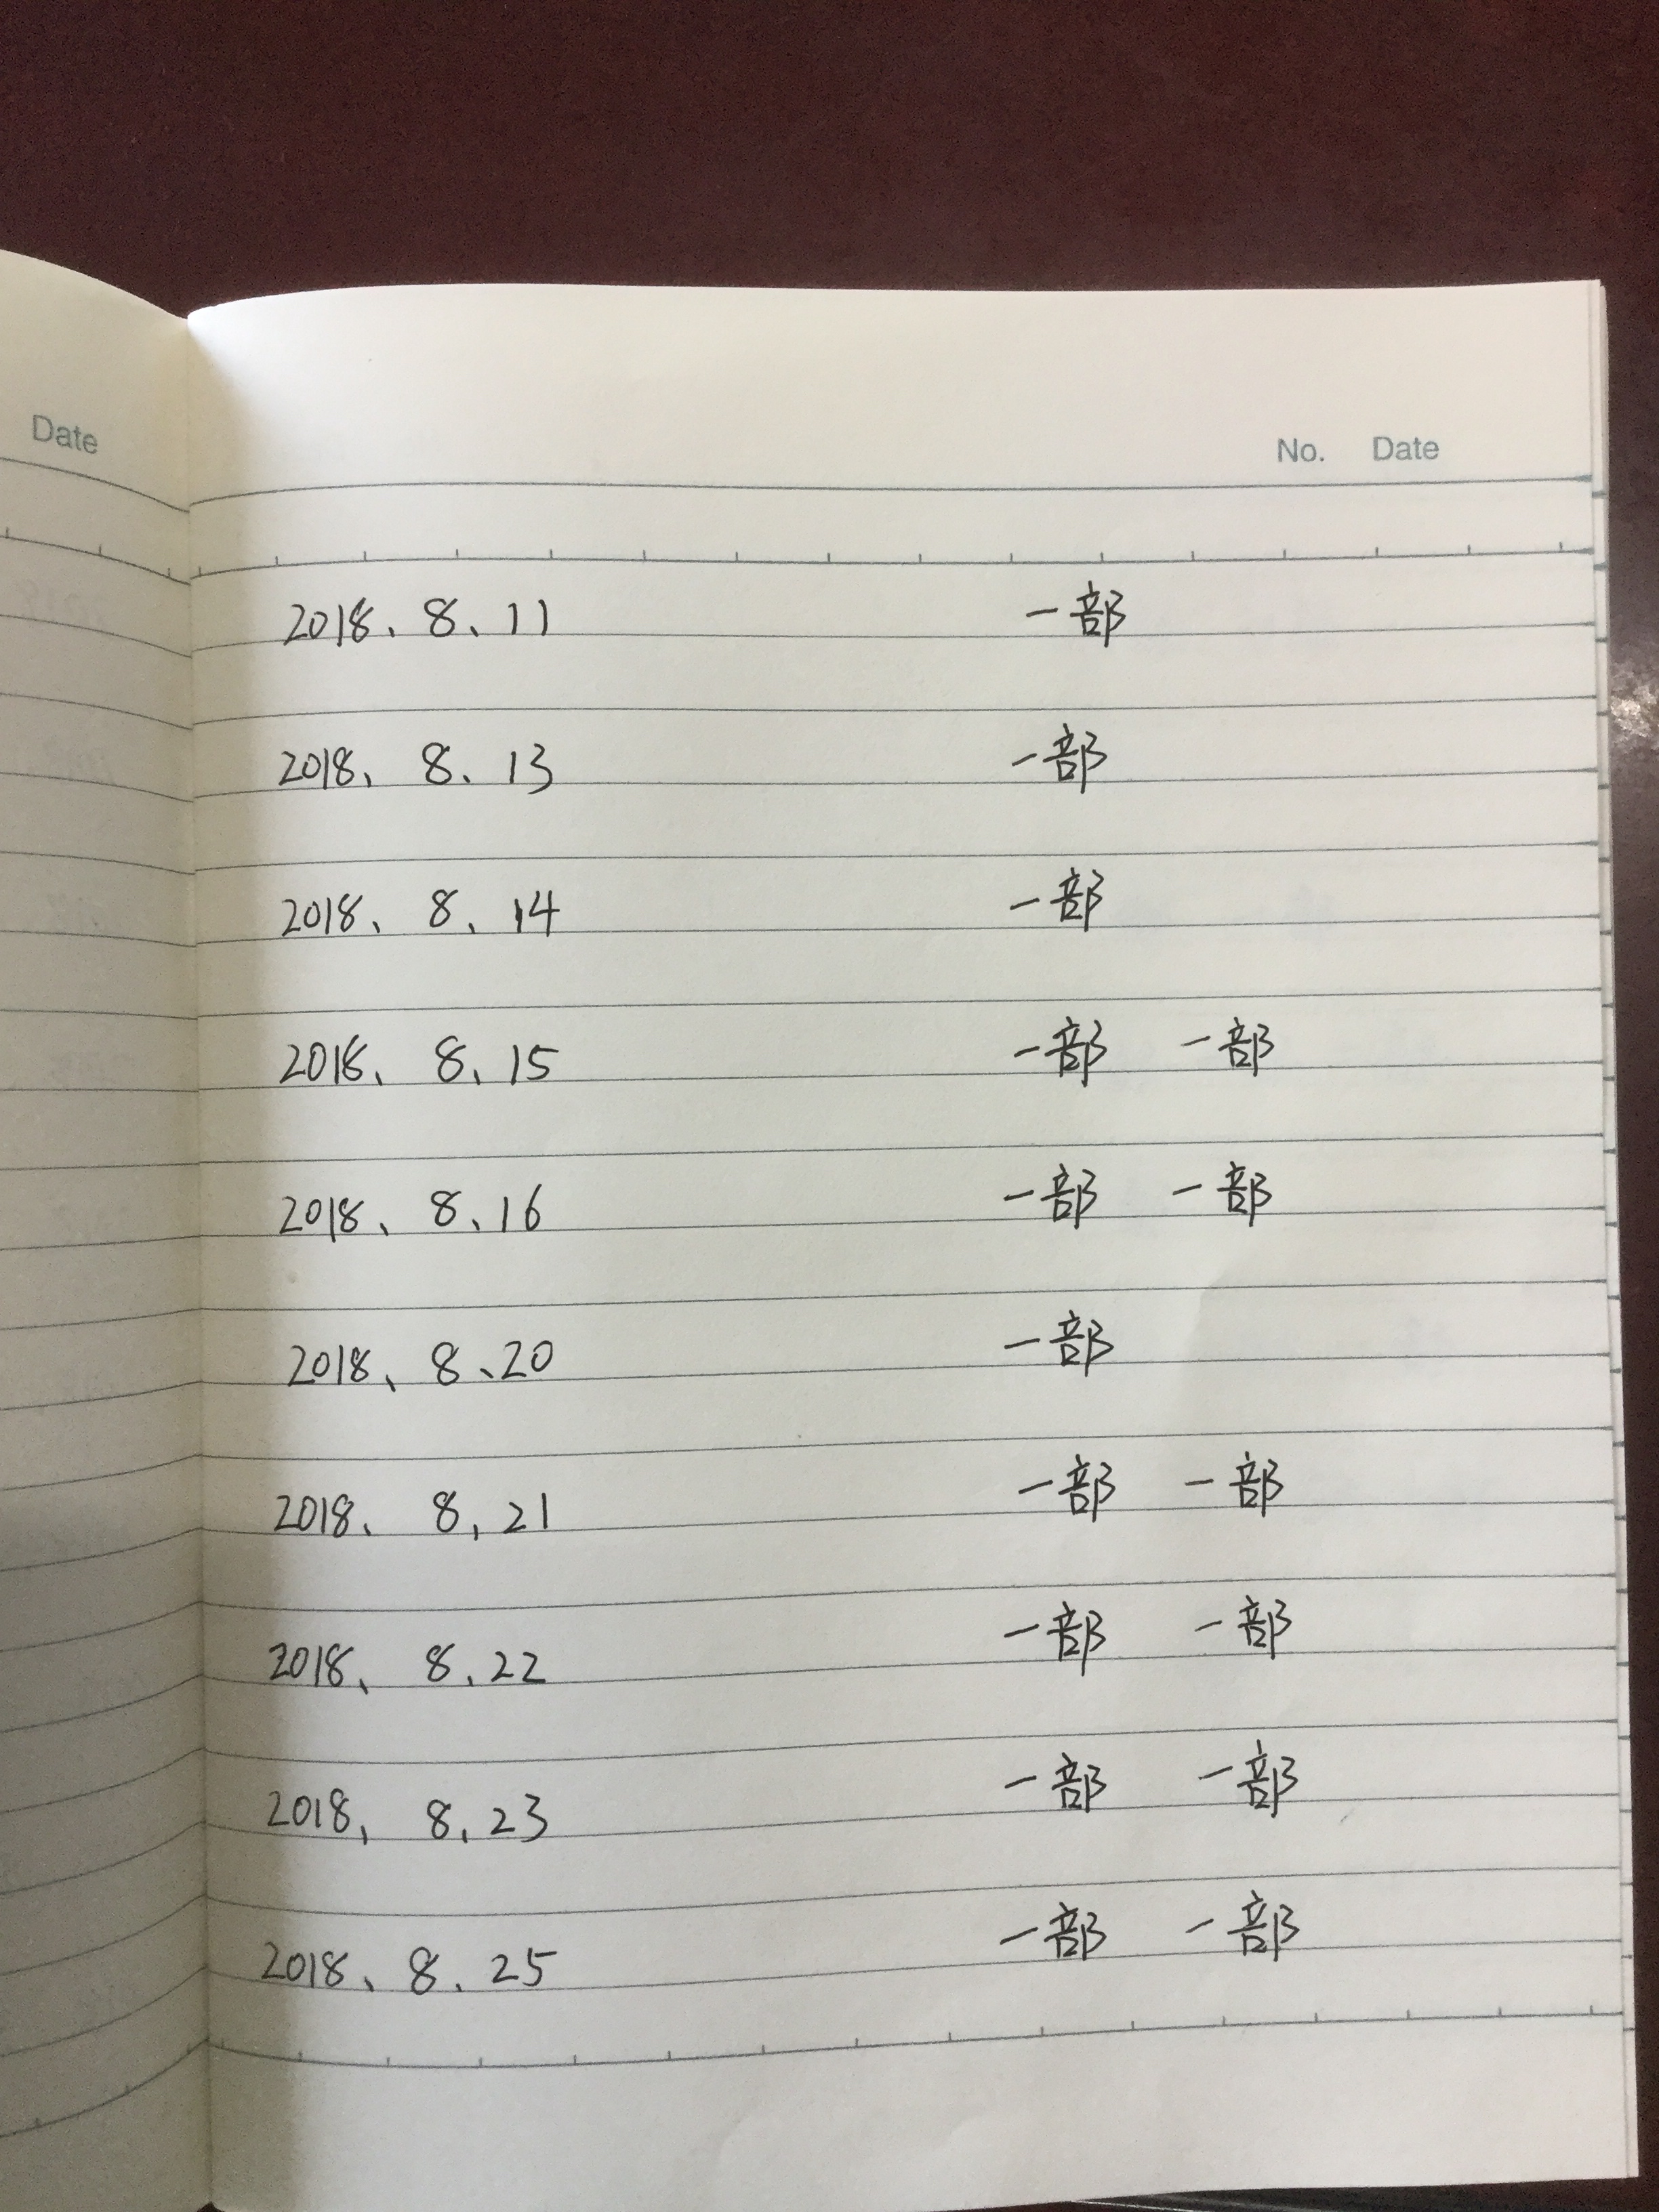 Date
No. Date
2018、8、11 一部
2018、8、13 一部
2018、8、14 一部
2018、8、15 一部 一部
2018、8、16 一部 一部
2018、8、20 一部
2018、8，21 一部 一部
2018、8、22 一部 一部
2018，8，23 一部 一部
2018、8、25 一部 一部